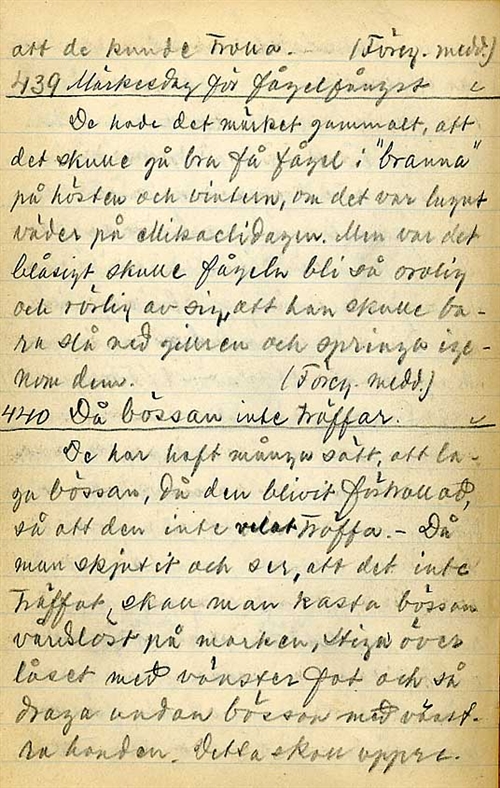 att de kunde trolla. (Föreg. medd.)
439 Märkesdag för fågelfångst
De hade det märket gammalt, att
det skulle gå bra få fågel i "branna"
på hösten och vintern, om det var lugnt
väder på Mikaelidagen. Men var det
blåsigt skulle fågeln bli så orolig
och rörlig av sig, att han skulle ba-
ra slå ned gillren och springa ige-
nom dem. (Föreg. medd.)
440 Då bössan inte träffar.
De har haft många sätt, att la-
ga bössan, då den blivit förtrollad,
så att den inte velat träffa. - Då
man skjutit och ser, att det inte
träffat, skall man kasta bössan
vårdslöst på marken, stiga över
låset med vänster fot och så
draga undan bössan med vänst-
ra handen. Detta skall uppre-